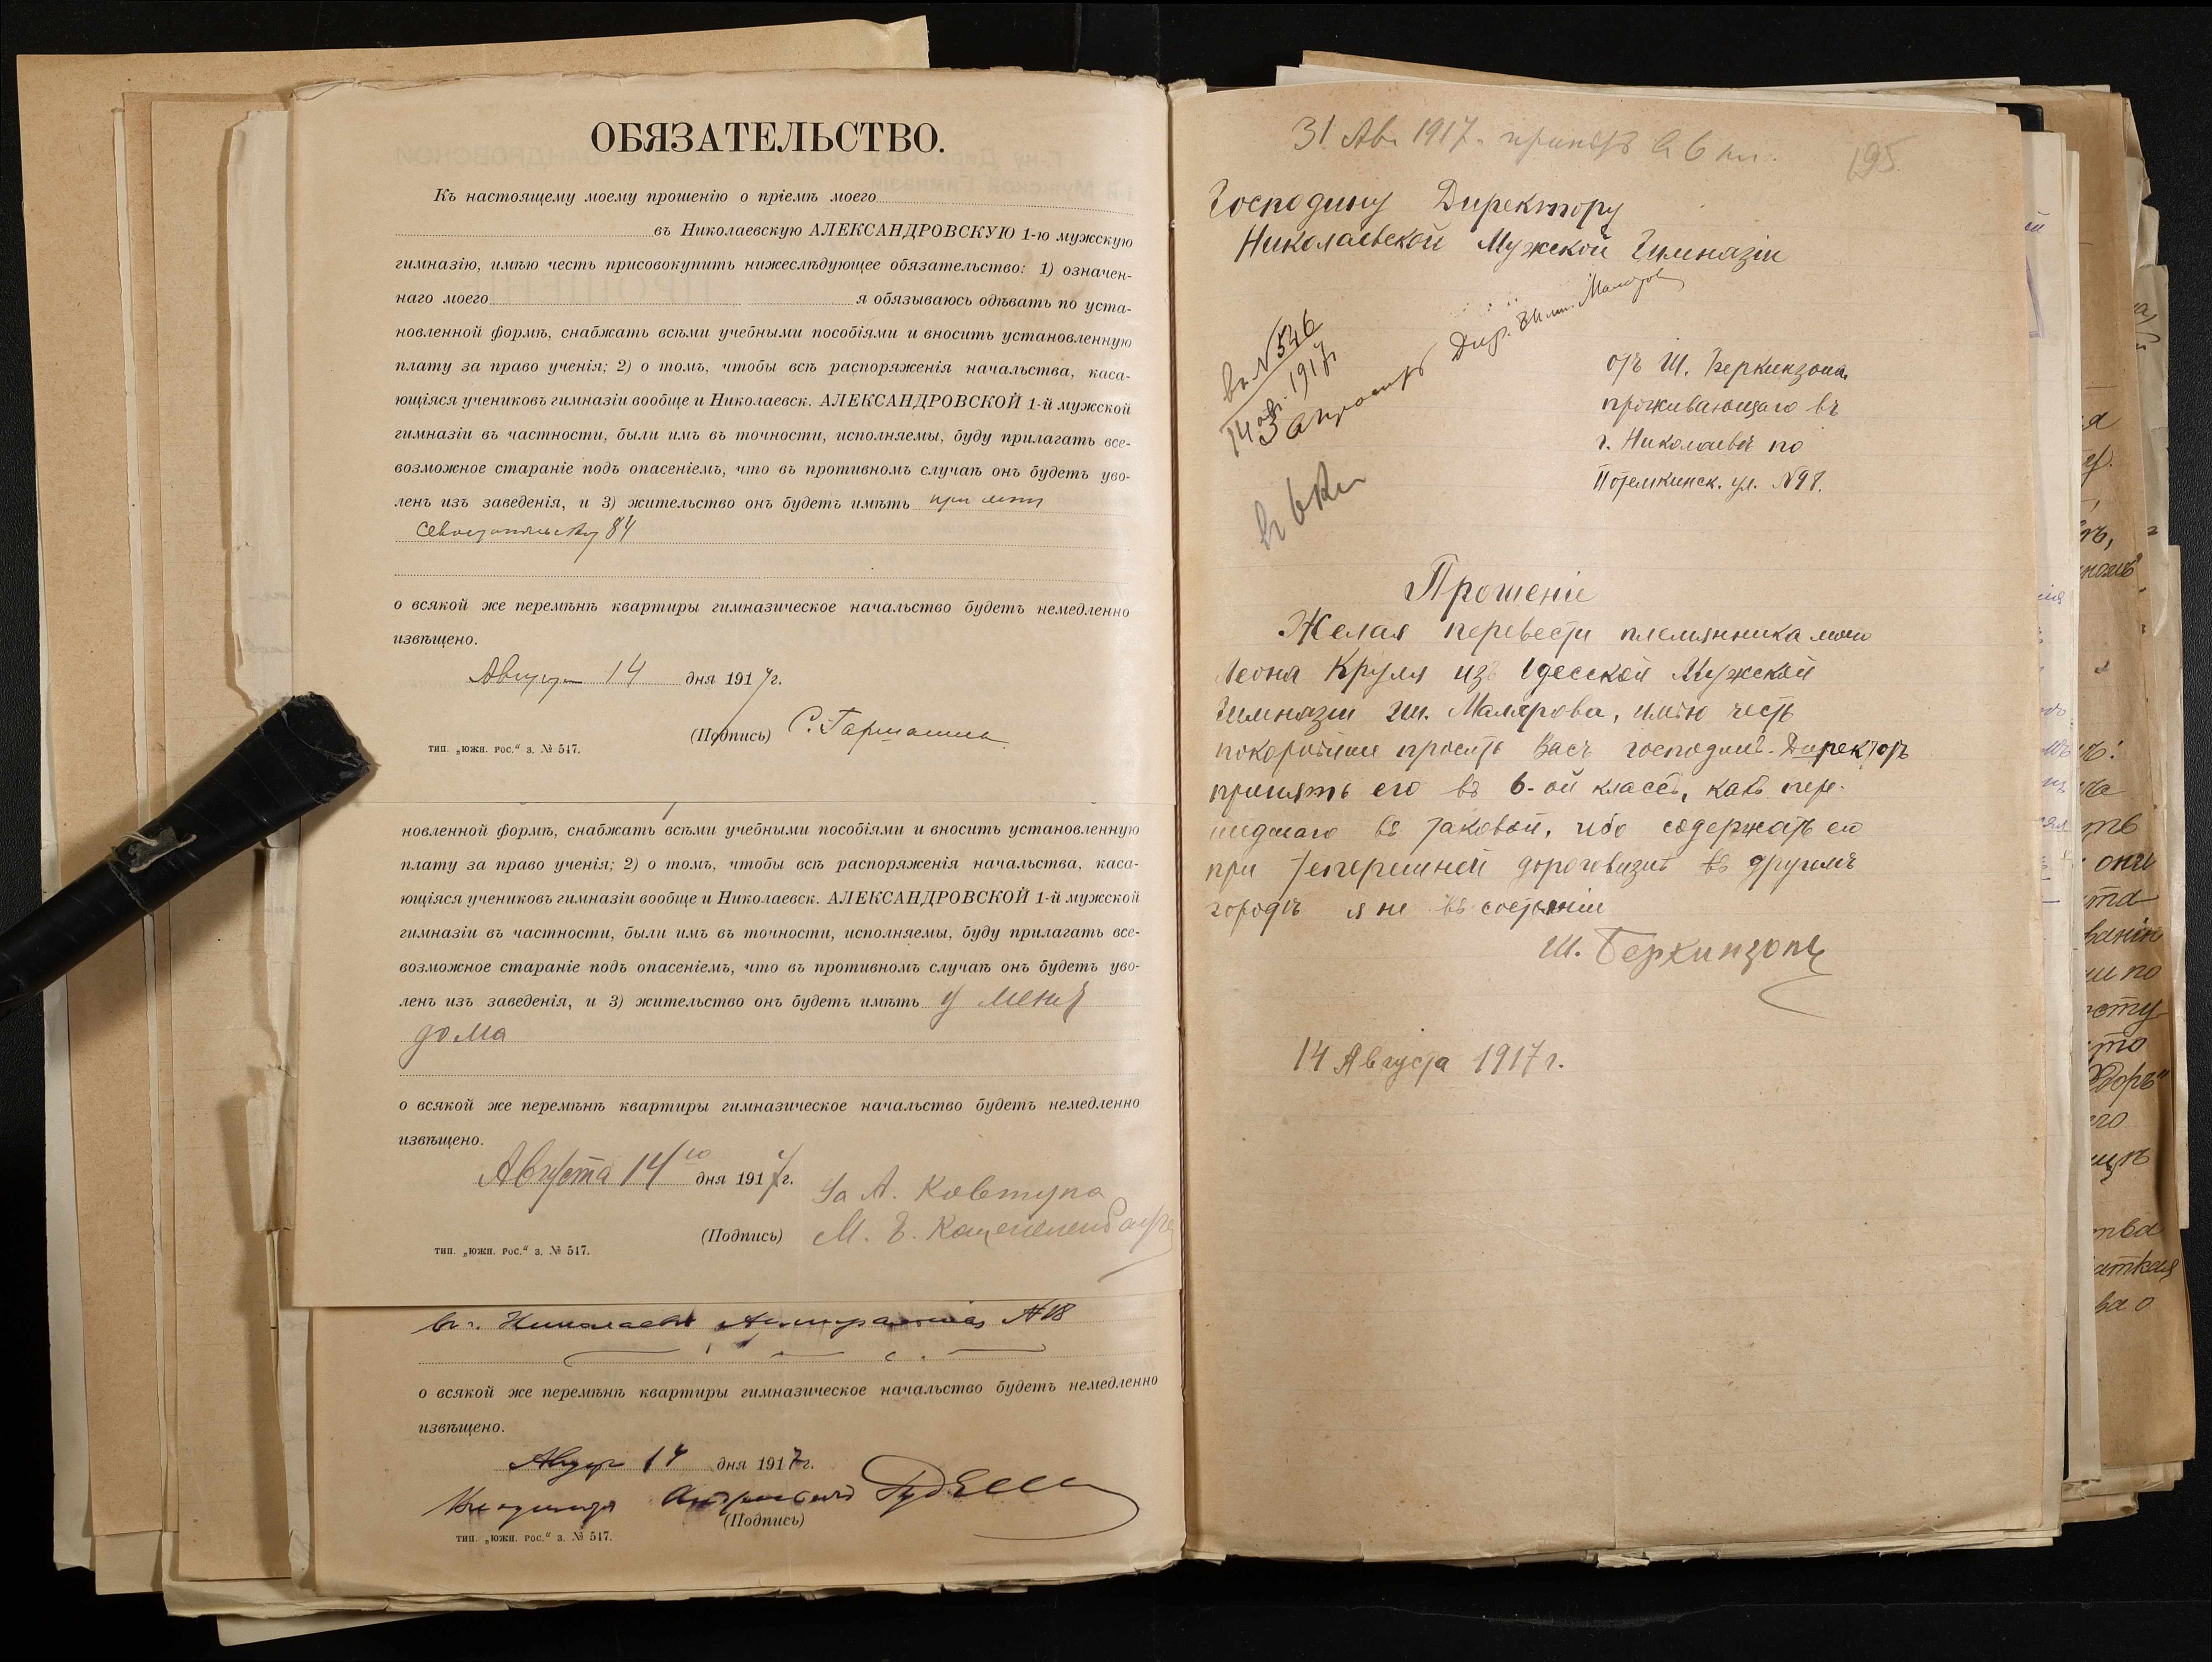 ОБЯЗАТЕЛЬСТВО.
Къ настоящему моему прошенію о пріемѣ моего
въ Николаевскую АЛЕКСАНДРОВСКУЮ 1-ю мужскую
гимназію, имѣю честь присовокупить нижеслѣдующее обязательство: 1) означен-
наго моего я обязываюсь одѣвать по уста-
новленной формѣ, снабжать всѣми учебными пособіями и вносить установленную
плату за право ученія; 2) о томъ, чтобы всѣ распоряженія начальства, каса-
ющіяся учениковъ гимназіи вообще и Николаевск. АЛЕКСАНДРОВСКОЙ 1-й мужской
гимназіи въ частности, были имъ въ точности, исполняемы, буду прилагать все-
возможное стараніе подъ опасеніемъ, что въ противномъ случаѣ онъ будетъ уво-
ленъ изъ заведенія, и 3) жительство онъ будетъ имѣть при мнѣ
84
о всякой же перемѣнѣ квартиры гимназическое начальство будетъ немедленно
извѣщено.
Август 14 дня 1917г.
(Подпись) С. Гаршанин
тип. „южн. рос.“ з. № 517.
новленной формѣ, снабжать всѣми учебными пособіями и вносить установленную
плату за право ученія; 2) о томъ, чтобы всѣ распоряженія начальства, каса-
ющіяся учениковъ гимназіи вообще и Николаевск. АЛЕКСАНДРОВСКОЙ 1-й мужской
гимназіи въ частности, были имъ въ точности, исполняемы, буду прилагать все-
возможное стараніе подъ опасеніемъ, что въ противномъ случаѣ онъ будетъ уво-
ленъ изъ заведенія, и 3) жительство онъ будетъ имѣть у меня
дома
о всякой же перемѣнѣ квартиры гимназическое начальство будетъ немедленно
извѣщено.
Августа 14го дня 1917г.
За А. Ковтуна
(Подпись) М. Е.
тип. „южн. рос.“ з. № 517.
в г. Николаевѣ №18
о всякой же перемѣнѣ квартиры гимназическое начальство будетъ немедленно
извѣщено.
Август 14 дня 1917г.
Владимиръ Андреевичъ
(Подпись)
тип. „южн. рос.“ з. № 517.
31 Авг. 1917 г. принятъ в 6 кл.
195
Господину Директору
Николаевской Мужской Гимназіи
вх. №546
14 авг. 1917 г.
Запросить Дир. Гимн. Малярова
въ 6 кл
отъ Ш. Беркинзона,
проживающаго въ
г. Николаевѣ по
Потемкинск. ул. №98.
Прошеніе
Желая перевести племянника моего
Леона Круля изъ Одесской Мужской
Гимназіи им. Малярова, имѣю честь
покорнѣйше просить Васъ господинъ Директоръ
принять его въ 6-ой классъ, какъ пере-
шедшаго въ таковой, ибо содержать его
при теперешней дороговизнѣ въ другомъ
городѣ я не въ состояніи
Ш. Беркинзонъ
14 Августа 1917 г.